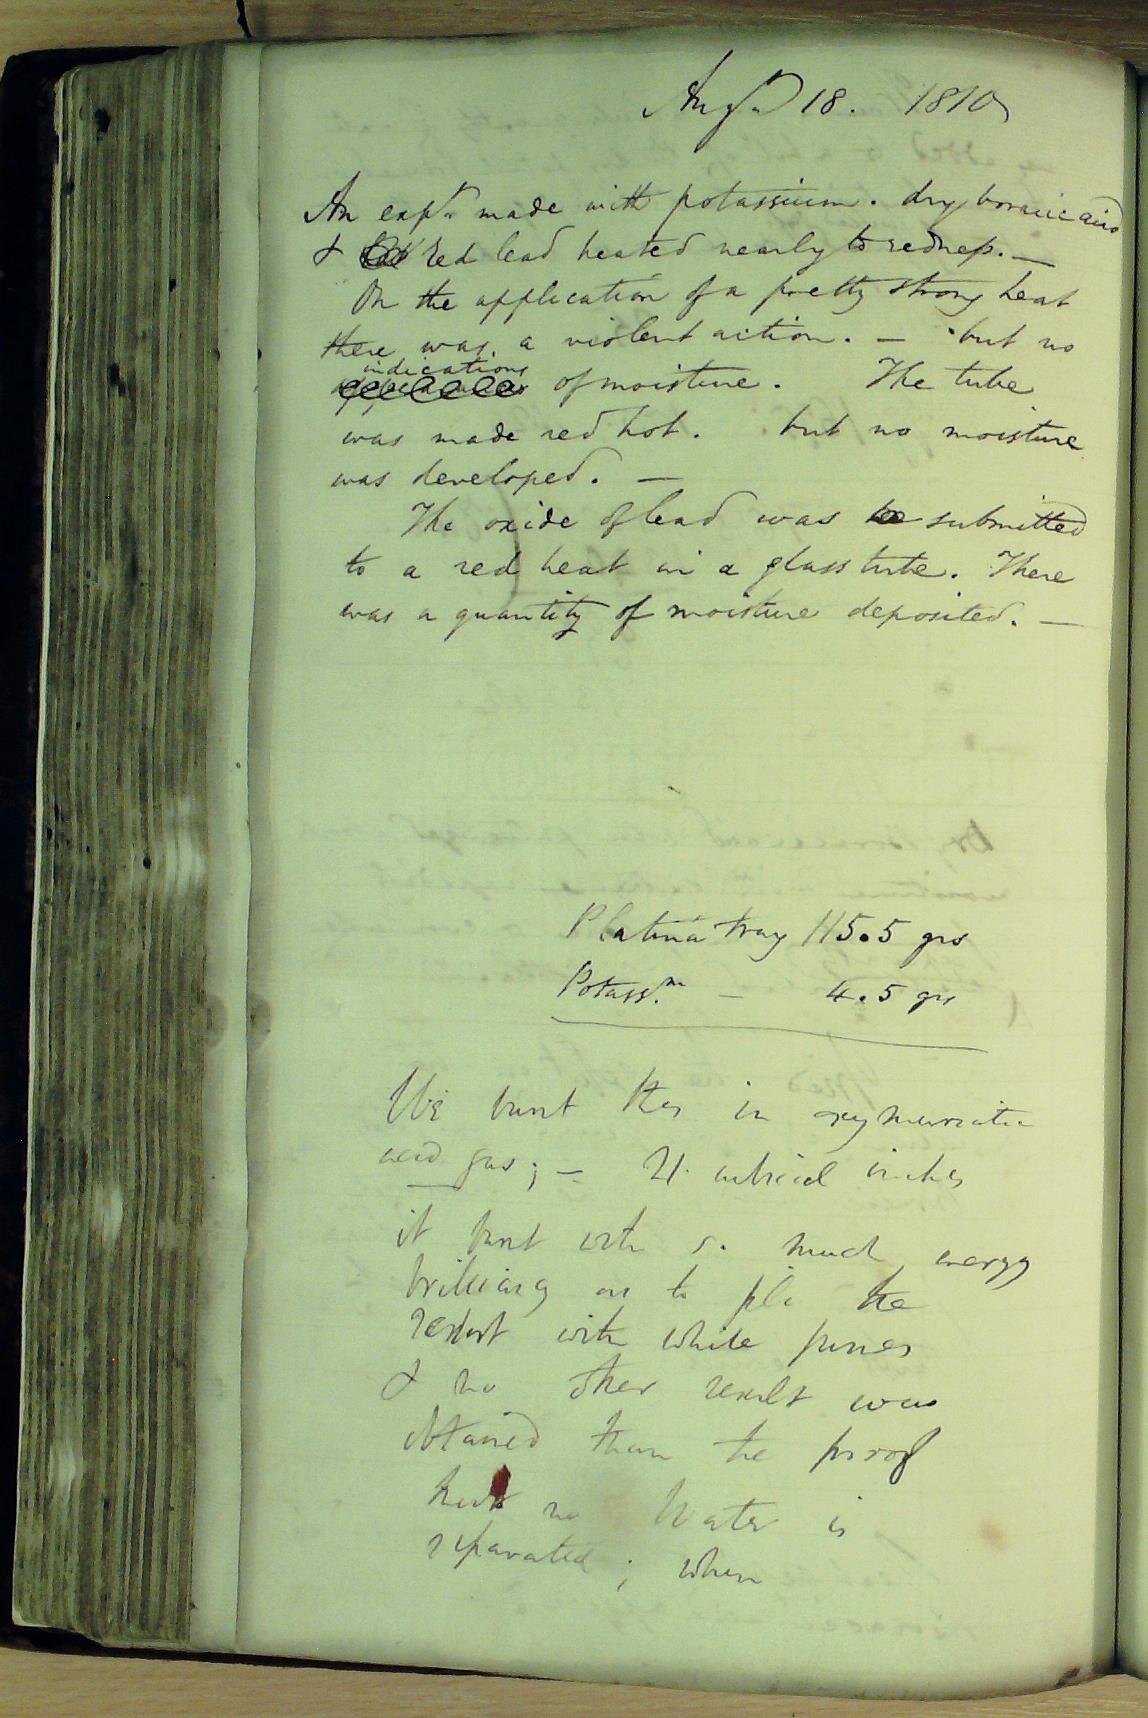 Augst 18. 1810
An expt made with potassium. dry boracic acid
& red lead heated nearly to redness. —
On the application of a pretty strong heat
there was a violent action. — but no
indications of moisture. The tube
was made red hot. but no moisture
was developed. —
The oxide of lead was submitted
to a red heat in a glass tube. There
was a quantity of moisture deposited. —
Platina tray 115.5 grs
Potassm — 4.5 grs
We burnt this in oxymuriatic
acid gas; — 21. cubical inches
it burnt with so much energy
brilliancy as to fill the
retort with white fumes
& no other result was
obtained than the proof
that no Water is
separated; when